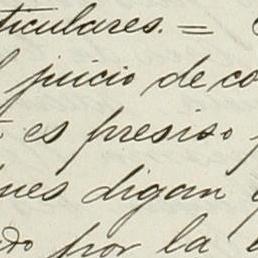 ticulares. =
juicio de co
es presiso
nes digan
do por la